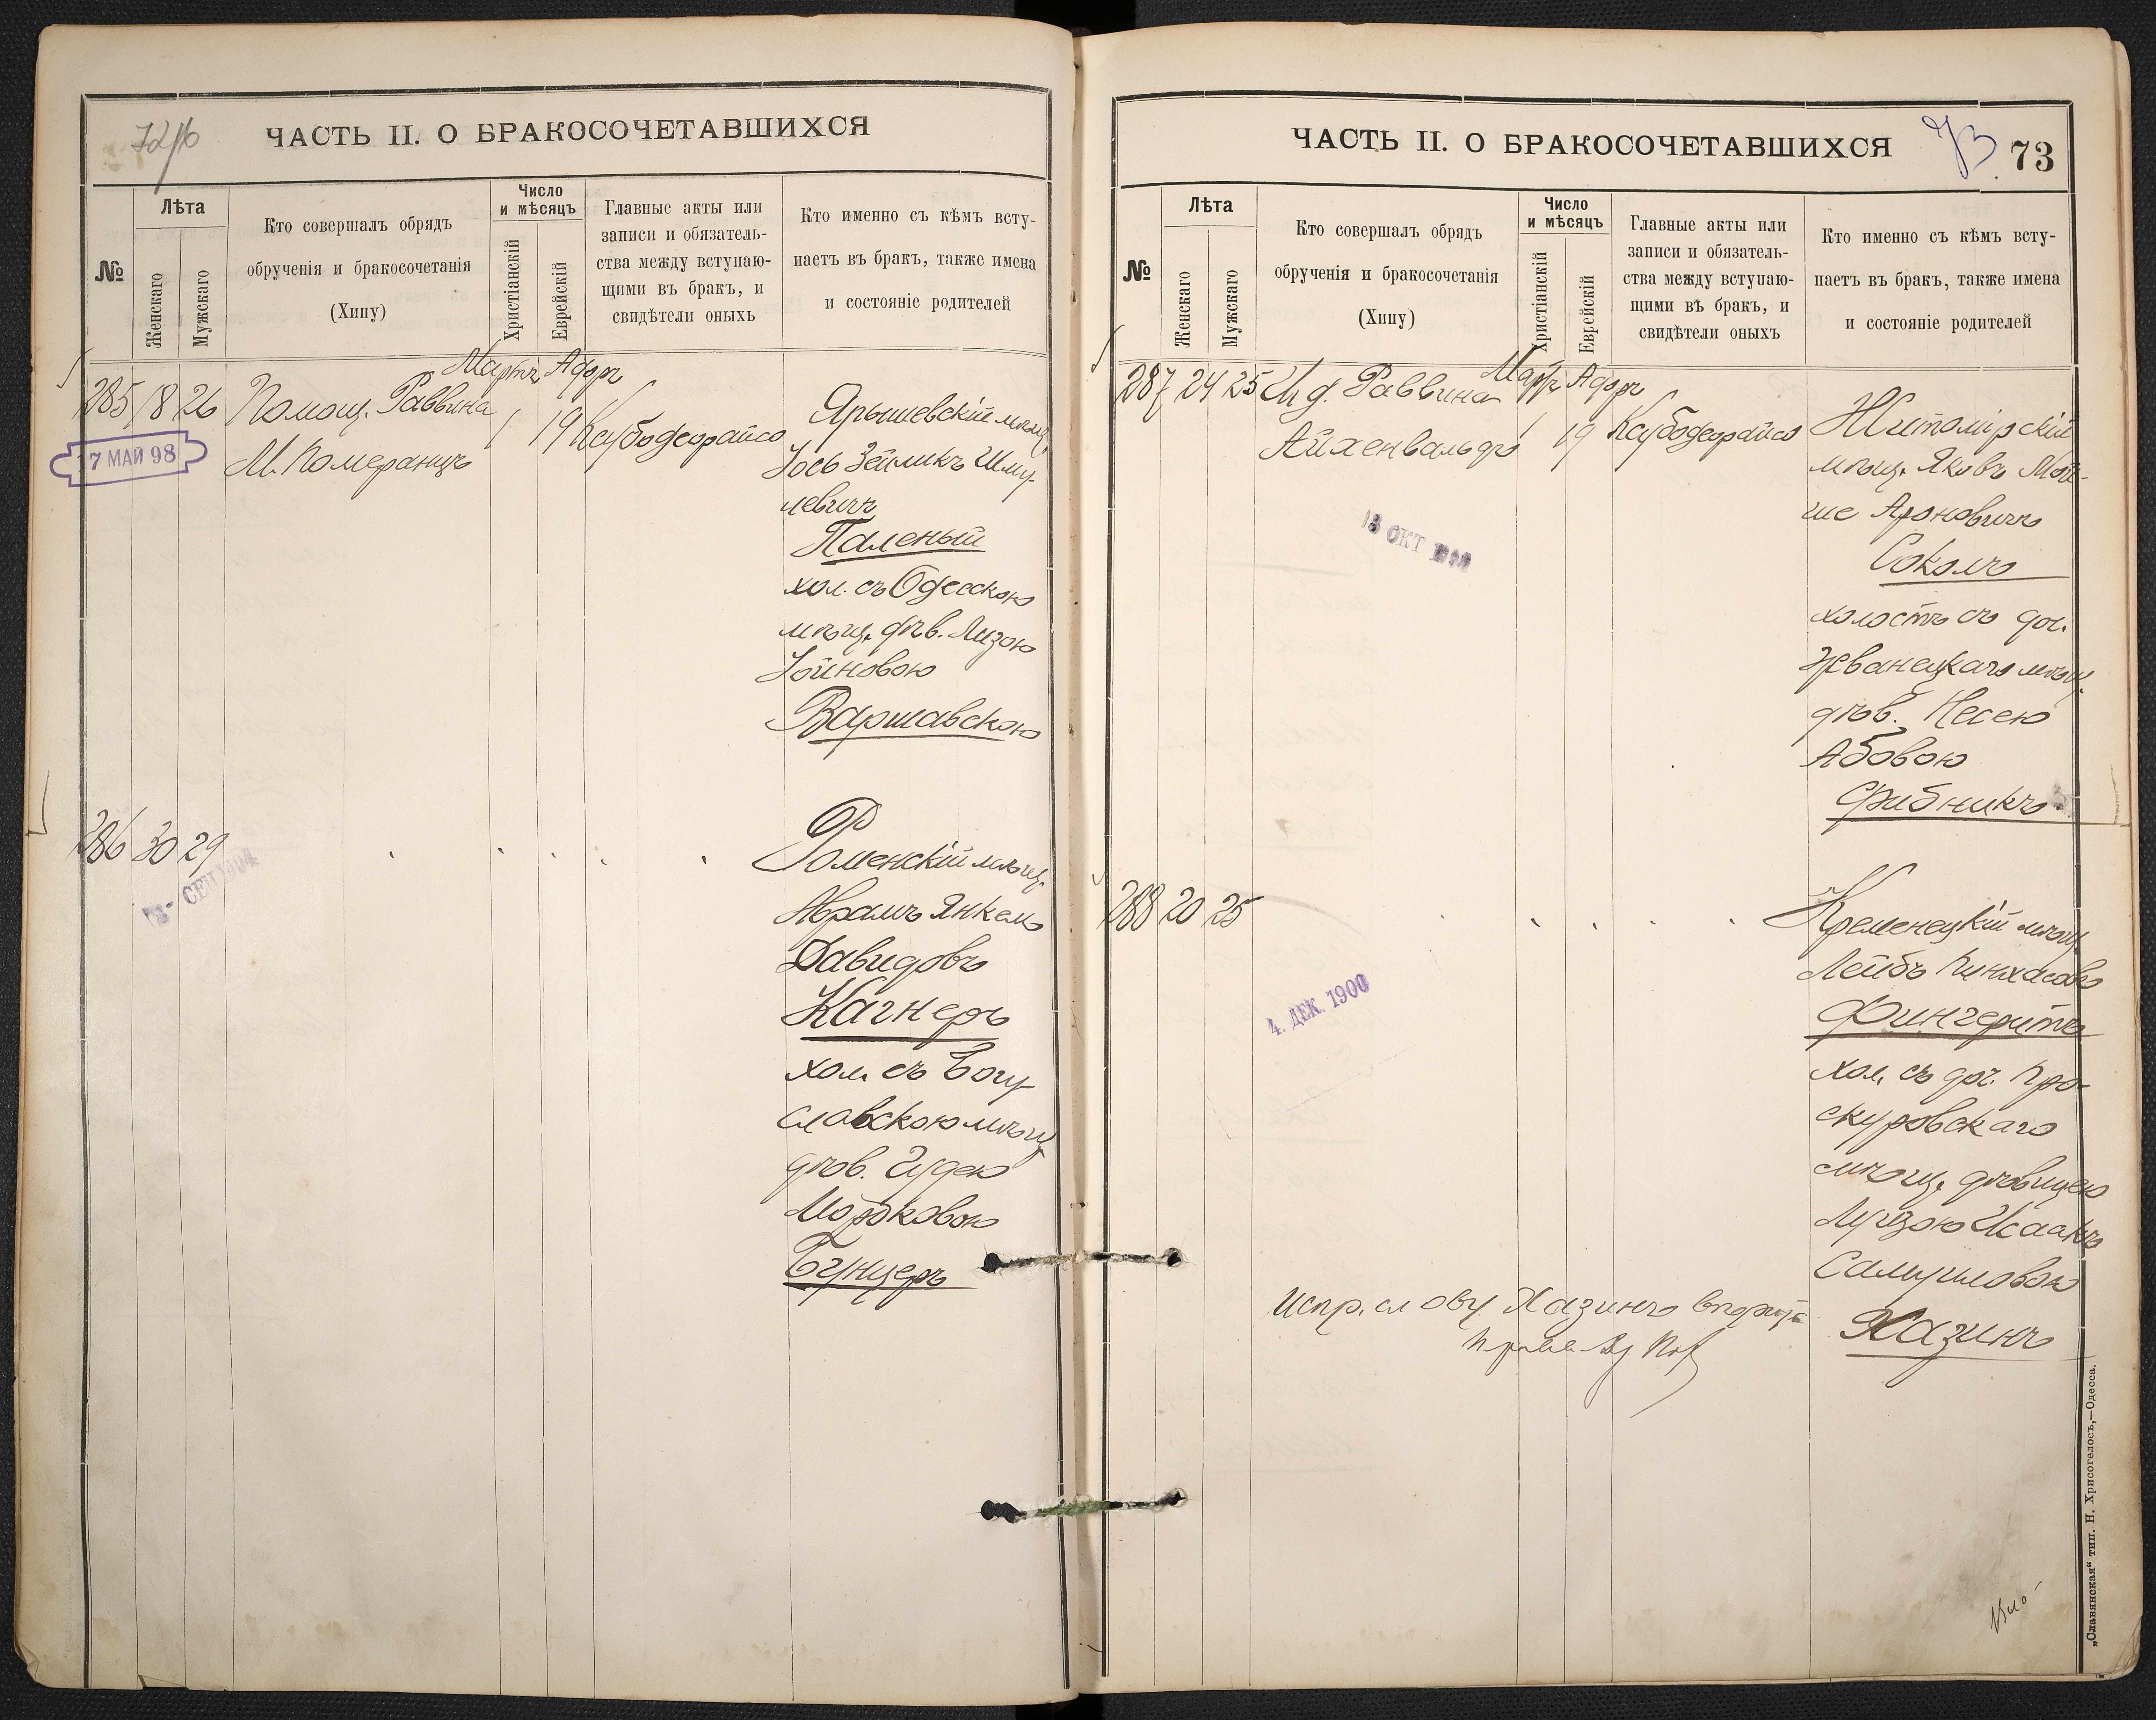 72 об
ЧАСТЬ II. О БРАКОСОЧЕТАВШИХСЯ
№
Лѣта
Женскаго
Мужскаго
Кто совершалъ обрядъ
обрученія и бракосочетанія
(Хипу)
Число
и мѣсяцъ
Христіанскій
Еврейскій
Главные акты или
записи и обязатель-
ства между вступаю-
щими въ бракъ, и
свидѣтели оныхъ
Кто именно съ кѣмъ всту-
паетъ въ бракъ, также имена
и состояніе родителей
Мартъ Адоръ
285 18 26 Помощ. Раввина
М. Померанцъ
1 19 Ксубодеорайсо
7 МАЙ 98
Ярышевскій мѣщ.
Іось Зейликъ Шму-
левичъ
Паленый
хол. съ Одесскою
мѣщ. дѣв. Лизою
Іойновою
Варшавскою
286 30 29
СЕН 1904
Роменскій мѣщ.
Абрамъ Янкель
Давидовъ
Кагнеръ
хол. съ Богу-
славскою мѣщ.
дѣв. Гудею
Мордковою
Бунцеръ
ЧАСТЬ II. О БРАКОСОЧЕТАВШИХСЯ
73
73
№
Лѣта
Женскаго
Мужскаго
Кто совершалъ обрядъ
обрученія и бракосочетанія
(Хипу)
Число
и мѣсяцъ
Христіанскій
Еврейскій
Главные акты или
записи и обязатель-
ства между вступаю-
щими въ бракъ, и
свидѣтели оныхъ
Кто именно съ кѣмъ всту-
паетъ въ бракъ, также имена
и состояніе родителей
Мартъ Адоръ
287 24 25 И д. Раввина
Айхенвальдъ
1 19 Ксубодеорайсо
ОКТ
Житомірскій
мѣщ. Яковъ Мой-
ше Ароновичъ
Соколъ
холостъ съ доч.
Жванецкаго мѣщ.
дѣв. Несею
Абовою
Срибникъ
288 20 25
4. ДЕК. 1900
Кременецкій мѣщ.
Лейбъ Пинхасовъ
Фингеритъ
хол. съ доч. Про-
скуровскаго
мѣщ. дѣвицею
Луизою Исаакъ
Самуиловою
Хазинъ
Испр. слову Хазинъ вѣрить
„Славянская“ тип. Н. Хрисогелосъ,—Одесса.